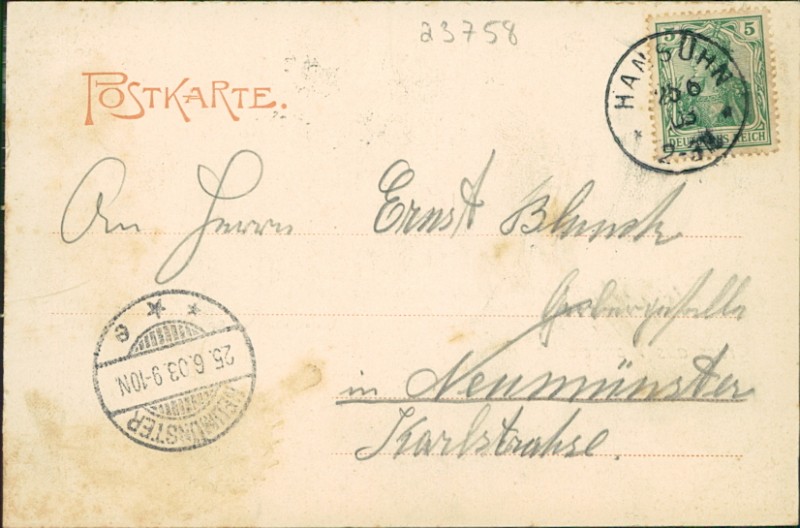 23758
POSTKARTE.
5 5
DEUTSCHES REICH
HANSÜHN
25 6
03
2-3N
An Herrn Ernst Blunck
Gerbergeselle
in Neumünster
Karlstrahse.
NEUMÜNSTER
25.6.03.9-10N
e